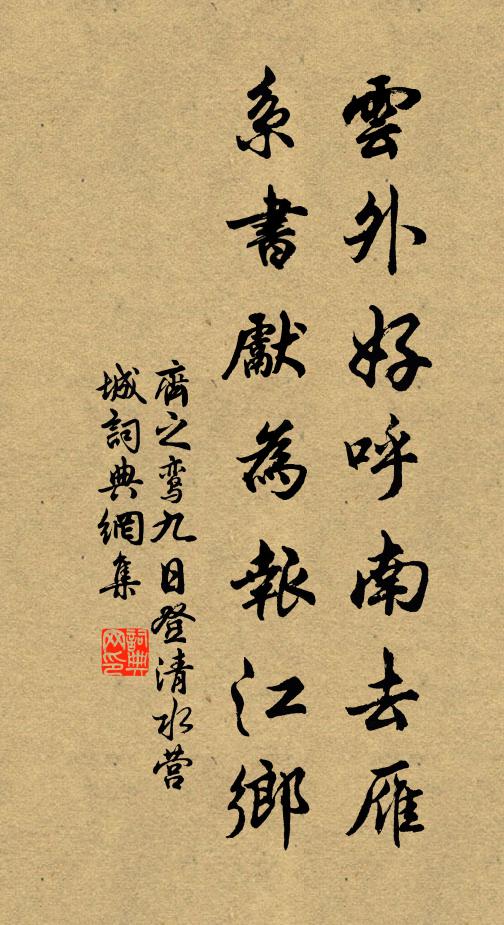 雲外好呼南去雁
系書獻為報江鄉
齊之鸾九日登清水营
城詞典網集
詞典
网印